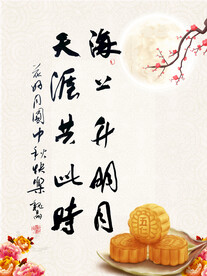 海上升明月
天涯共此時
花好月圓中秋快樂